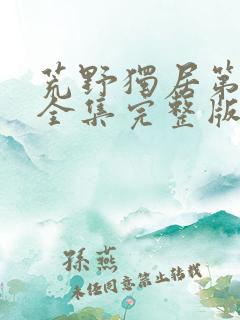 荒野獨居第
全集完整版
孫燕
未經同意禁止轉載